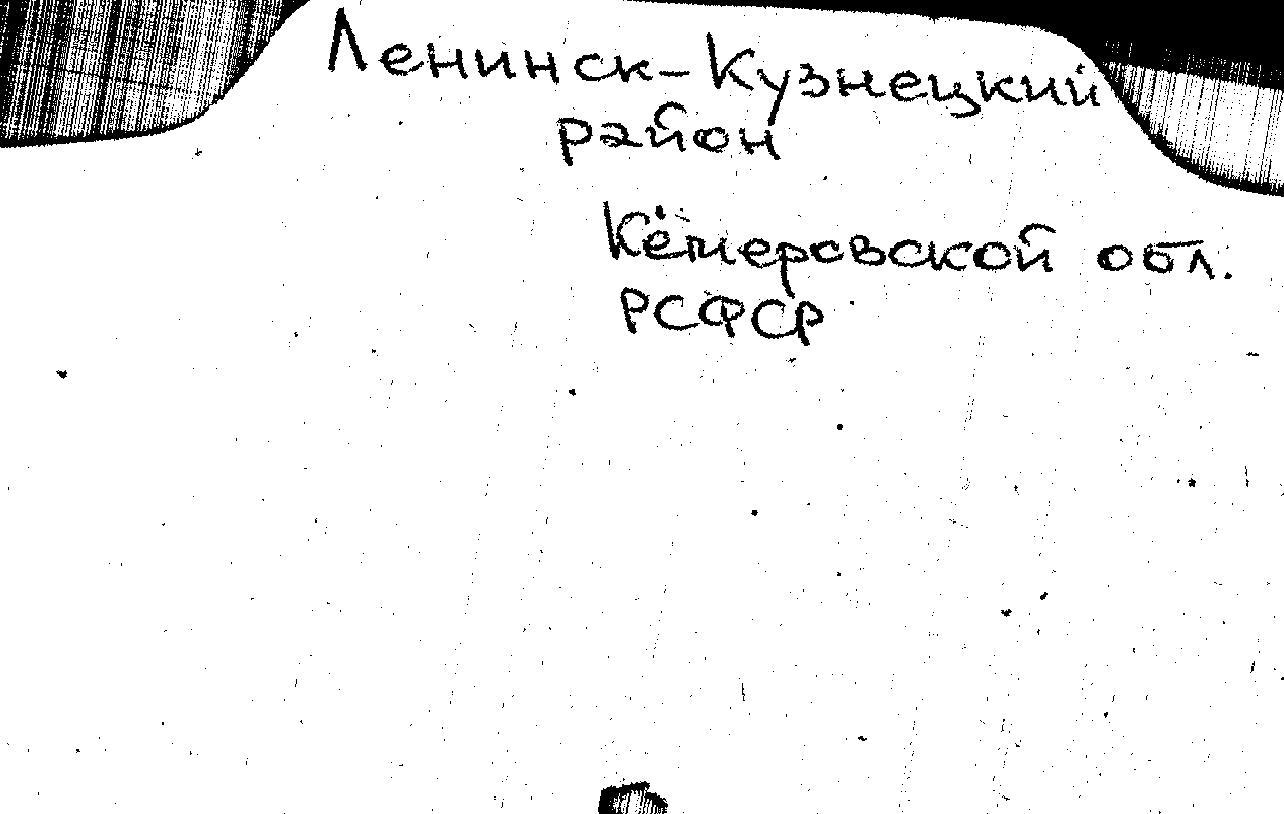 Ленинск-Кузнецкий
район
Кемеровской обл.
РСФСР